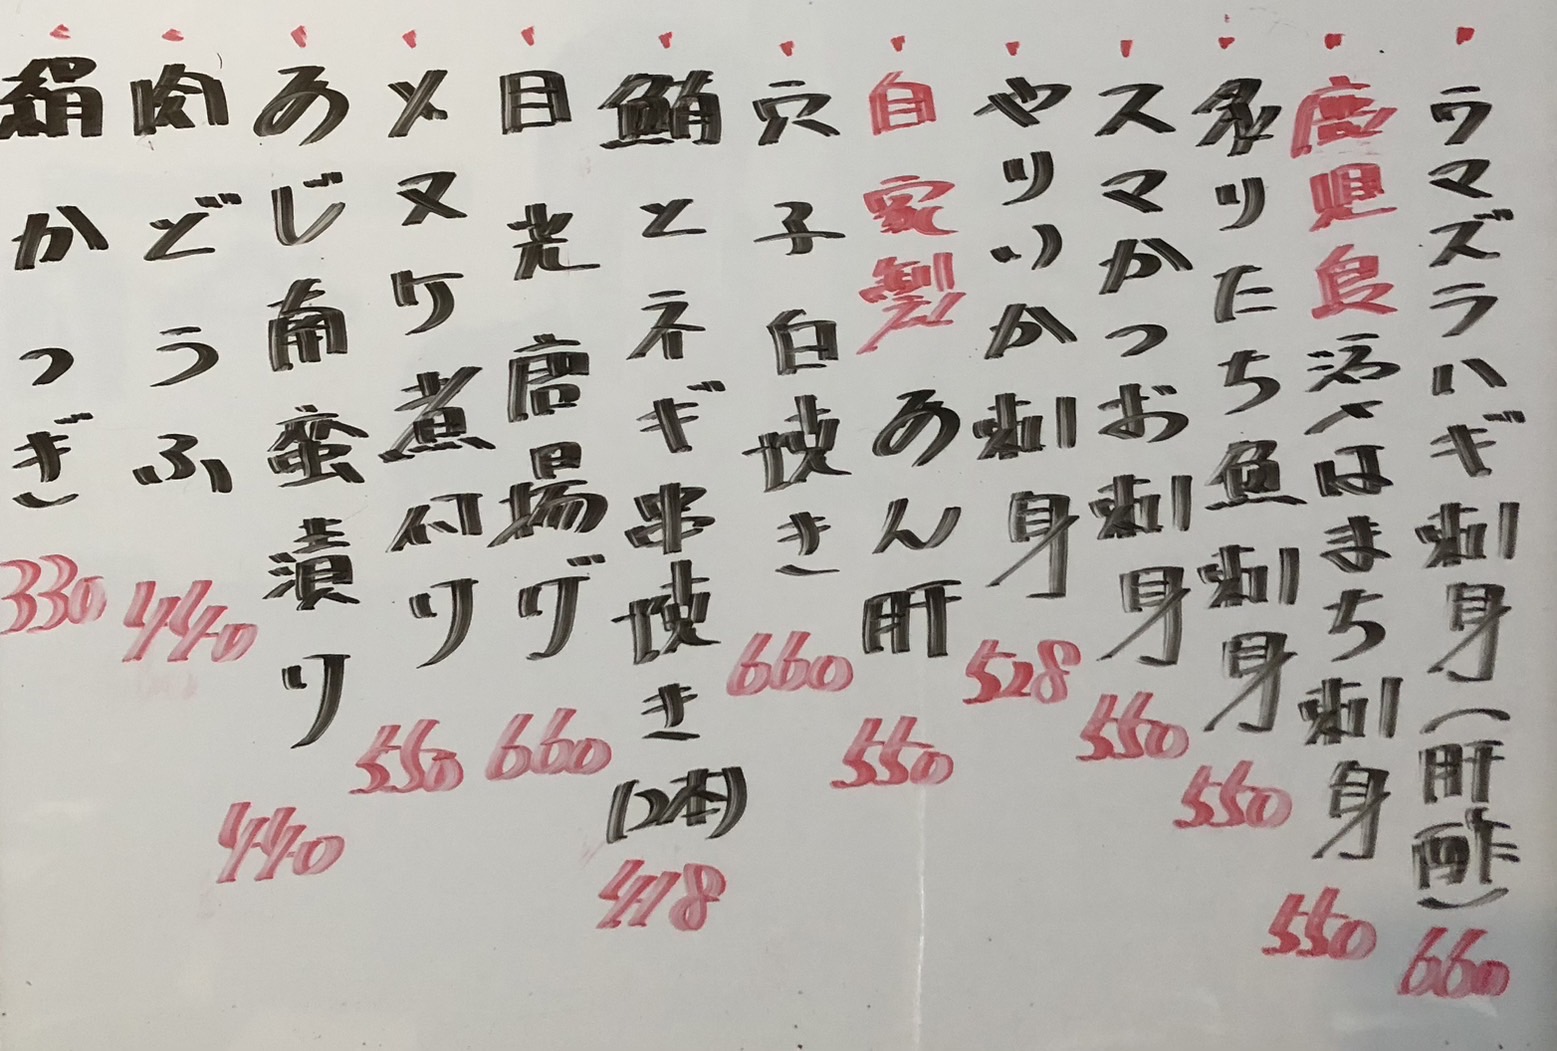 ウマズラハギ刺身(肝酢) 660
鹿児島活〆はまち刺身 550
炙りたち魚刺身 550
スマかつお刺身 550
やりいか刺身 528
自家製あん肝 550
穴子白焼き 660
鮪とネギ串焼き(2本) 418
目光唐揚げ 660
メヌケ煮付け 550
あじ南蛮漬け 440
肉どうふ 440
絹かつぎ 330